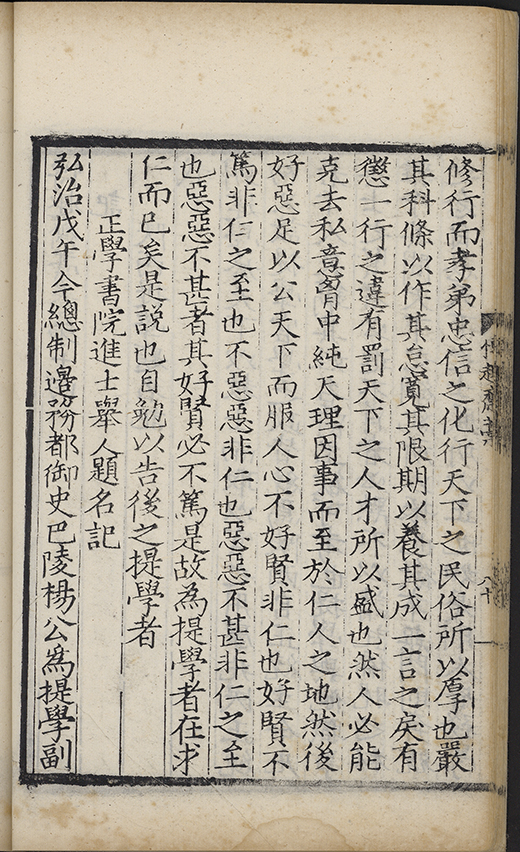 修行而孝弟忠信之化行天下之民俗所以厚也嚴
其科條以作其怠寬其限期以養其成一言之戾有
懲一行之違有罰天下之人才所以盛也然人必能
克去私意胷中純天理因事而至於仁人之地然後
好惡足以公天下而服人心不好賢非仁也好賢不
篤非仁之至也不惡惡非仁也惡惡不甚非仁之至
也惡惡不甚者其好賢必不篤是故為提學者在求
仁而已矣是說也自勉以告後之提學者
正學書院進士舉人題名記
弘治戊午今總制邊務都御史巴陵楊公爲提學副